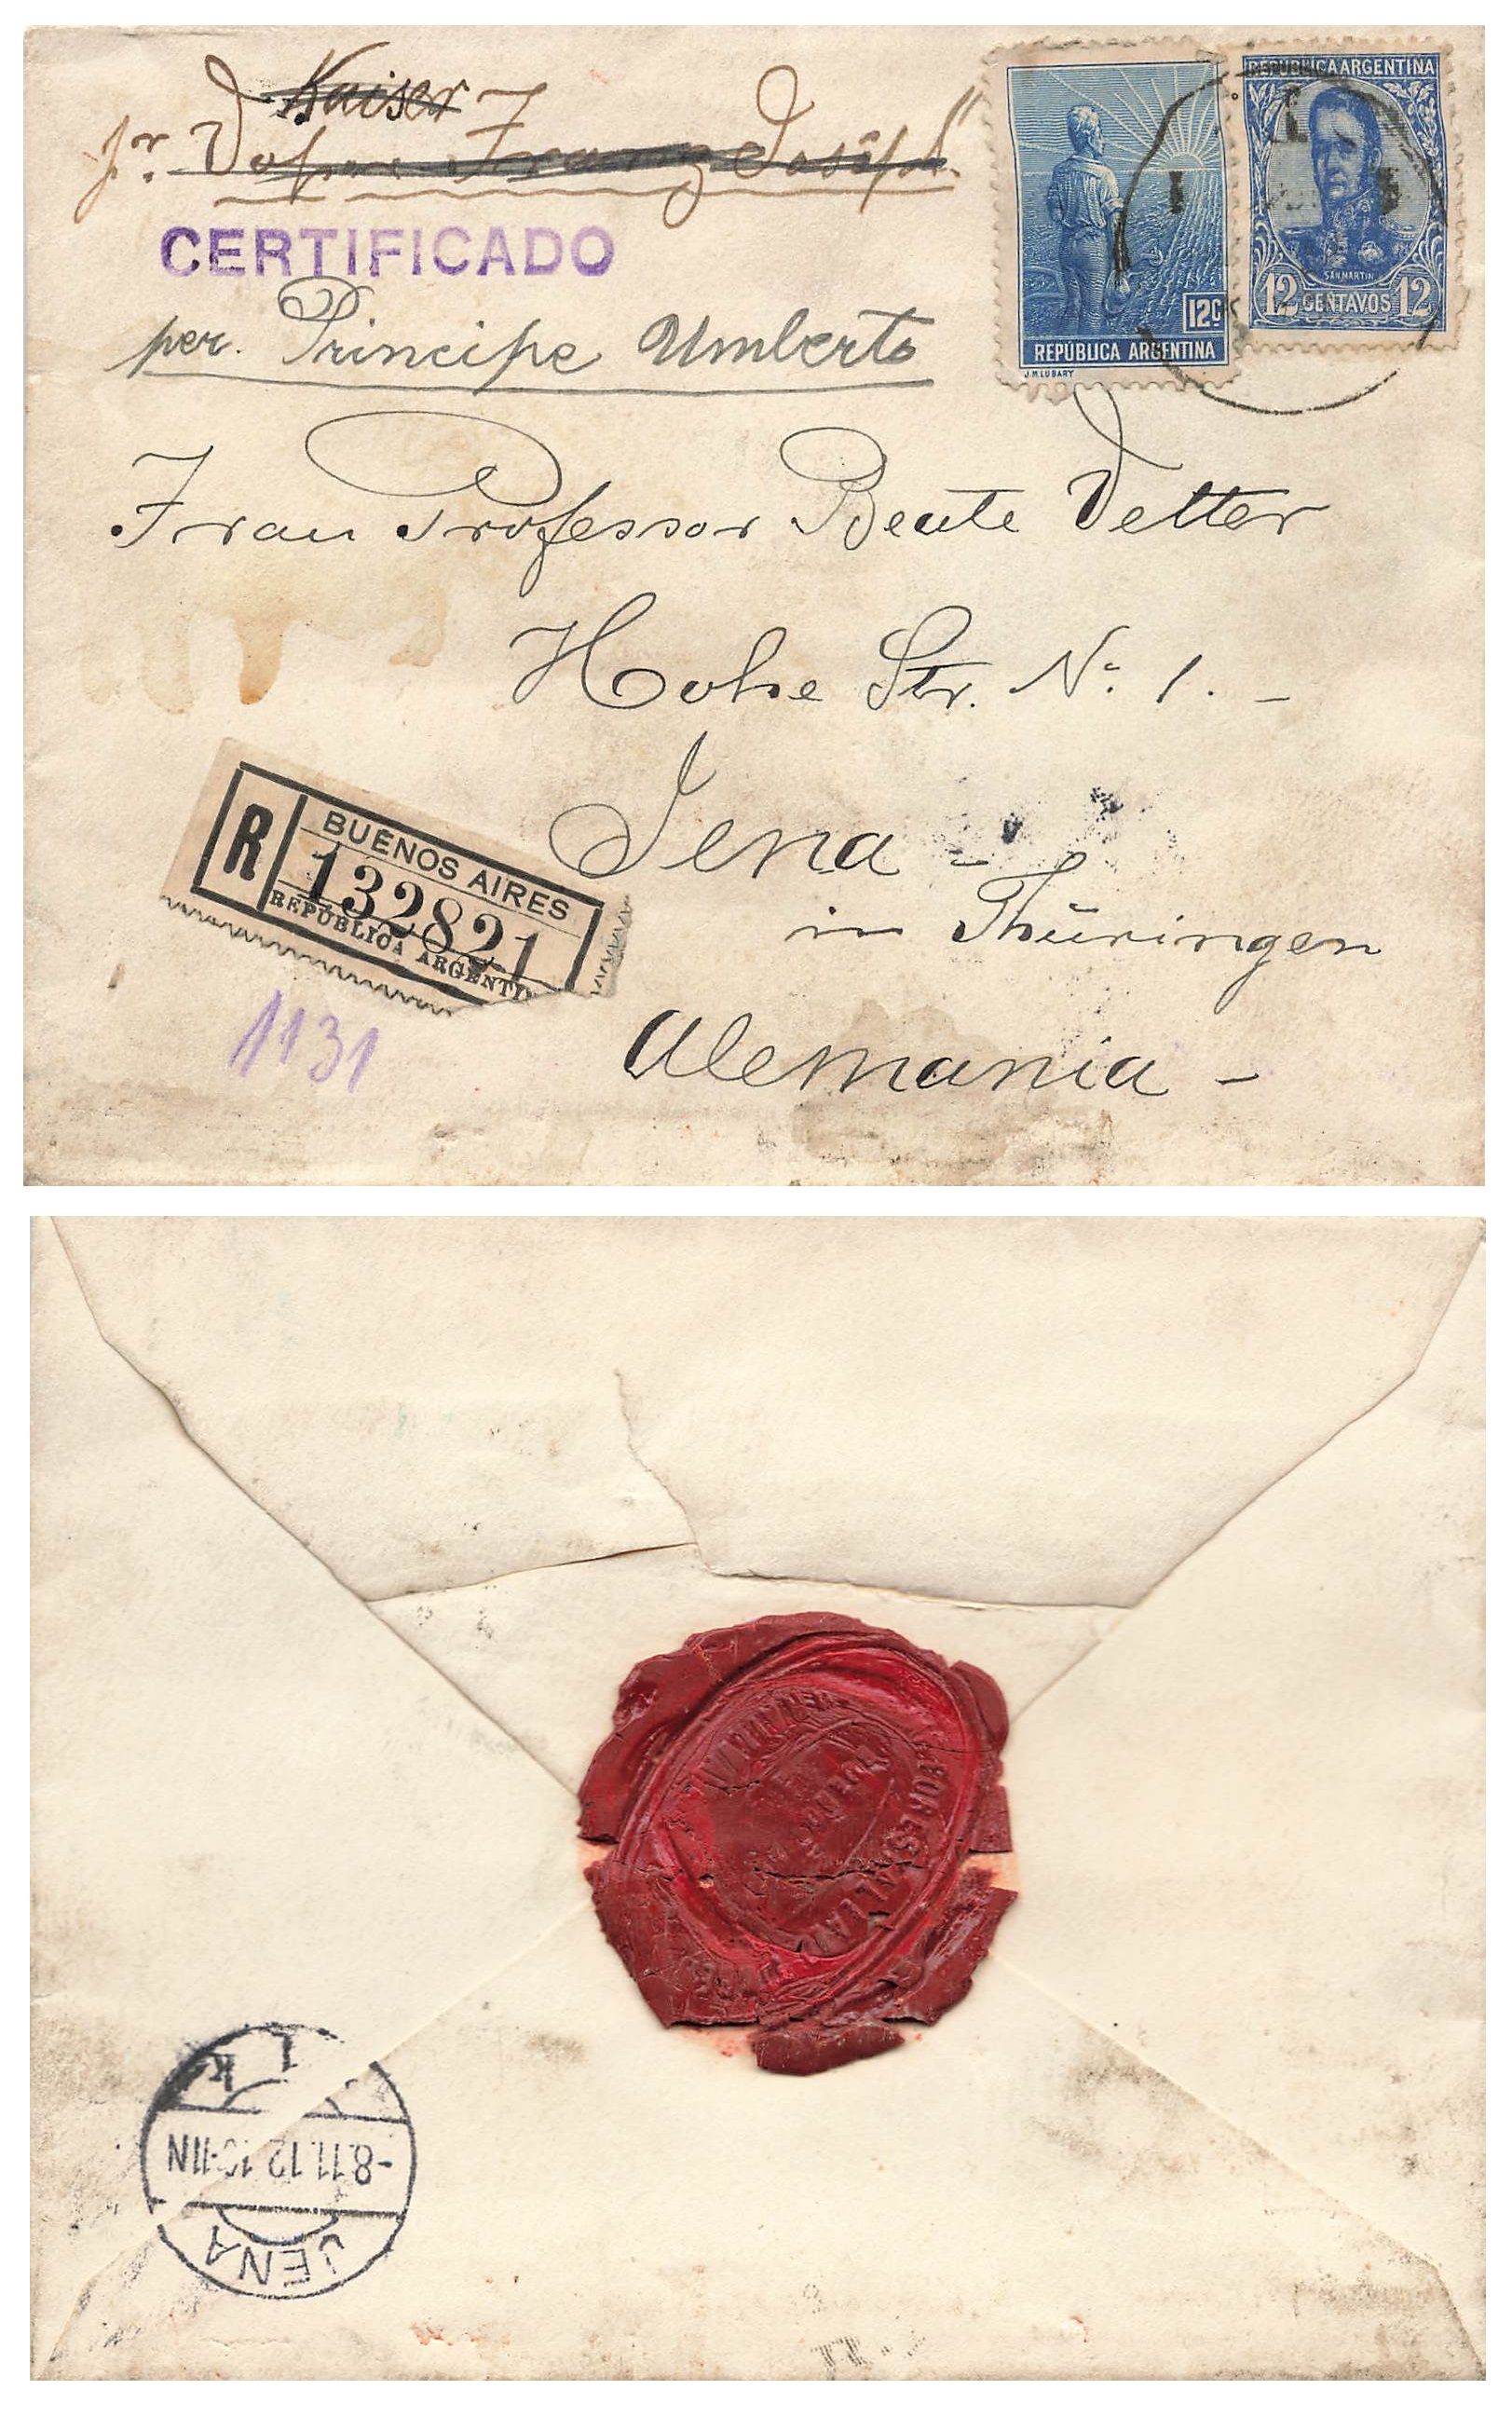 Kaiser
pr. Vapor Franz Joseph"
CERTIFICADO
per. Principe Umberto
12c
REPÚBLICA ARGENTINA
J.M.LUBARY
REPUBLICA ARGENTINA
SAN MARTIN
12 CENTAVOS 12
Frau Professor Beate Vetter
Hohe Str. No. 1. -
Jena -
in Thüringen
Alemania -
R
BUENOS AIRES
132821
REPÚBLICA ARGENTI
1131
JENA
-8.11.12.
1 k